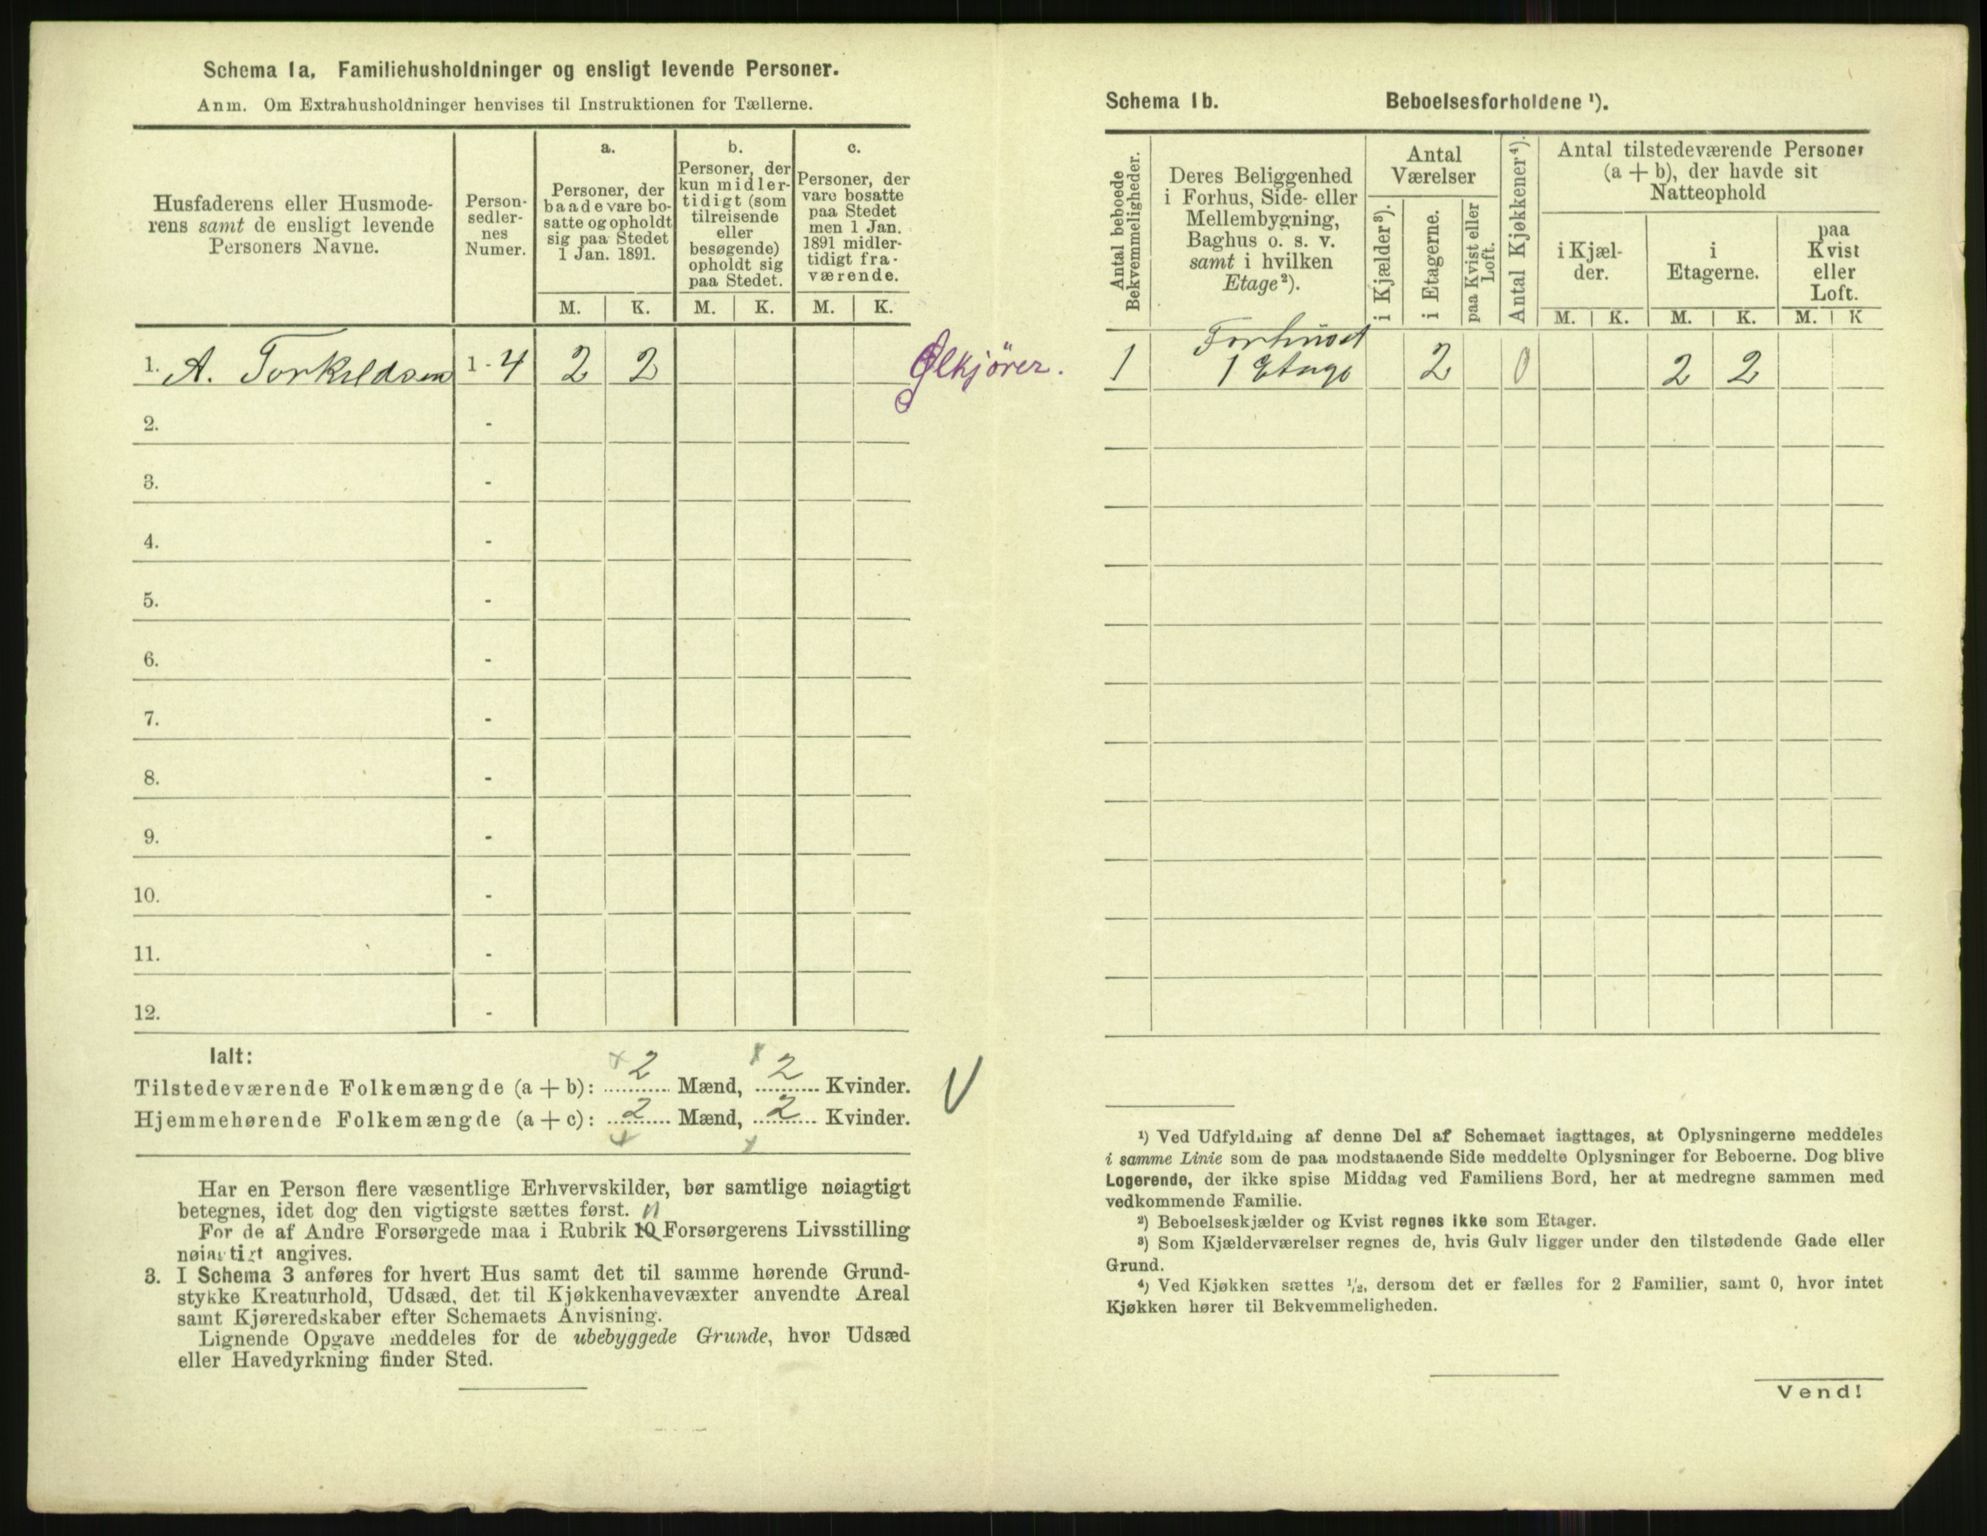 Schema 1a. Familiehusholdninger og ensligt levende Personer.
Anm. Om Extrahusholdninger henvises til Instruktionen for Tællerne.
Husfaderens eller Husmode-
rens samt de ensligt levende
Personers Navne.
Person-
sedler-
nes
Numer.
a.
Personer, der
baade vare bo-
satte og opholdt
sig paa Stedet
1 Jan. 1891.
b.
Personer, der
kun midler-
tidigt (som
tilreisende
eller
besøgende)
opholdt sig
paa Stedet.
c.
Personer, der
vare bosatte
paa Stedet
men 1 Jan.
1891 midler-
tidigt fra-
værende.
M. K. M. K. M. K.
1. A. Torkildsen 1 - 4 2 2
Ølkjører.
2. -
3. -
4. -
5. -
6. -
7. -
8. -
9. -
10. -
11. -
12. -
Ialt:
Tilstedeværende Folkemængde (a + b): 2 Mænd, 2 Kvinder.
Hjemmehørende Folkemængde (a + c): 2 Mænd, 2 Kvinder.
Har en Person flere væsentlige Erhvervskilder, bør samtlige nøiagtigt
betegnes, idet dog den vigtigste sættes først.
11
For de af Andre Forsørgede maa i Rubrik 10 Forsørgerens Livsstilling
nøiagtigt angives.
3. I Schema 3 anføres for hvert Hus samt det til samme hørende Grund-
stykke Kreaturhold, Udsæd, det til Kjøkkenhavevæxter anvendte Areal
samt Kjøreredskaber efter Schemaets Anvisning.
Lignende Opgave meddeles for de ubebyggede Grunde, hvor Udsæd
eller Havedyrkning finder Sted.
Schema 1b. Beboelsesforholdene ¹).
Antal beboede
Bekvemmeligheder.
Deres Beliggenhed
i Forhus, Side- eller
Mellembygning,
Baghus o. s. v.
samt i hvilken
Etage ²).
Antal
Værelser
i Kjælder ³).
i Etagerne.
paa Kvist eller
Loft.
Antal Kjøkkener ⁴).
Antal tilstedeværende Personer
(a + b), der havde sit
Natteophold
i Kjæl-
der.
i
Etagerne.
paa
Kvist
eller
Loft.
M. K. M. K. M. K
1 Forhuset
1 Etage 2 0 2 2
¹) Ved Udfyldning af denne Del af Schemaet iagttages, at Oplysningerne meddeles
i samme Linie som de paa modstaaende Side meddelte Oplysninger for Beboerne. Dog blive
Logerende, der ikke spise Middag ved Familiens Bord, her at medregne sammen med
vedkommende Familie.
²) Beboelseskjælder og Kvist regnes ikke som Etager.
³) Som Kjælderværelser regnes de, hvis Gulv ligger under den tilstødende Gade eller
Grund.
⁴) Ved Kjøkken sættes ½, dersom det er fælles for 2 Familier, samt 0, hvor intet
Kjøkken hører til Bekvemmeligheden.
Vend!